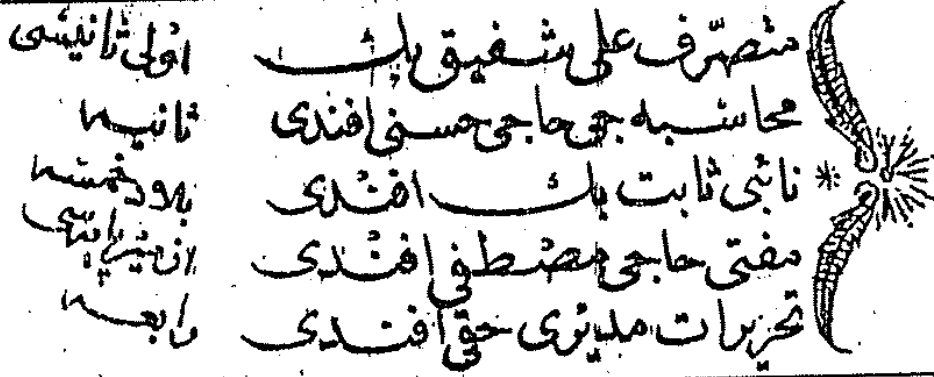 متصرّف علی شفیق بك اولی ثانیسی
محاسبه جی حاجی حسنی افندی ثانیه
نائبی ثابت بك افندی بلاد خمسه
مفتی حاجی مصطفی افندی ازمیر پایه‌سی
تحریرات مدیری حقی افندی رابعه